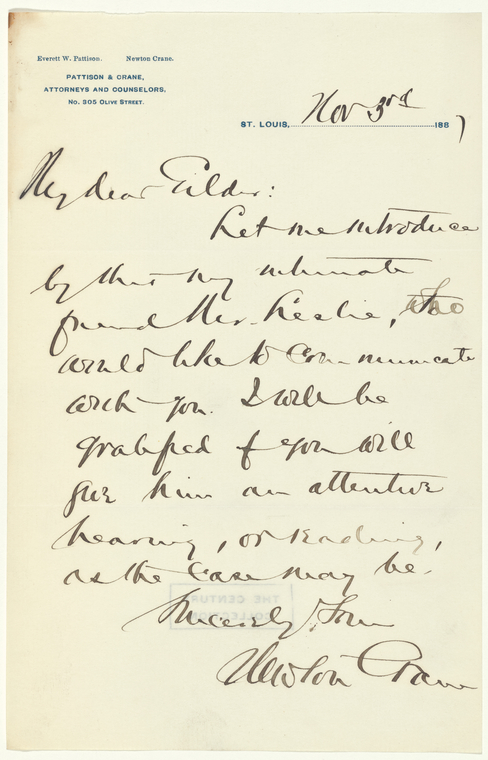 Everett W. Pattison. Newton Crane.
PATTISON & CRANE,
ATTORNEYS AND COUNSELORS,
No. 305 OLIVE STREET.
ST. LOUIS, Nov 3rd 1887
My dear Gilder:
Let me introduce
by this my intimate
friend Mr. Leslie, who
would like to communicate
with you. I will be
gratified if you will
give him an attentive
hearing, or reading,
as the case may be.
THE CENTURY
COLLECTION
Sincerely Yours
Newton Crane